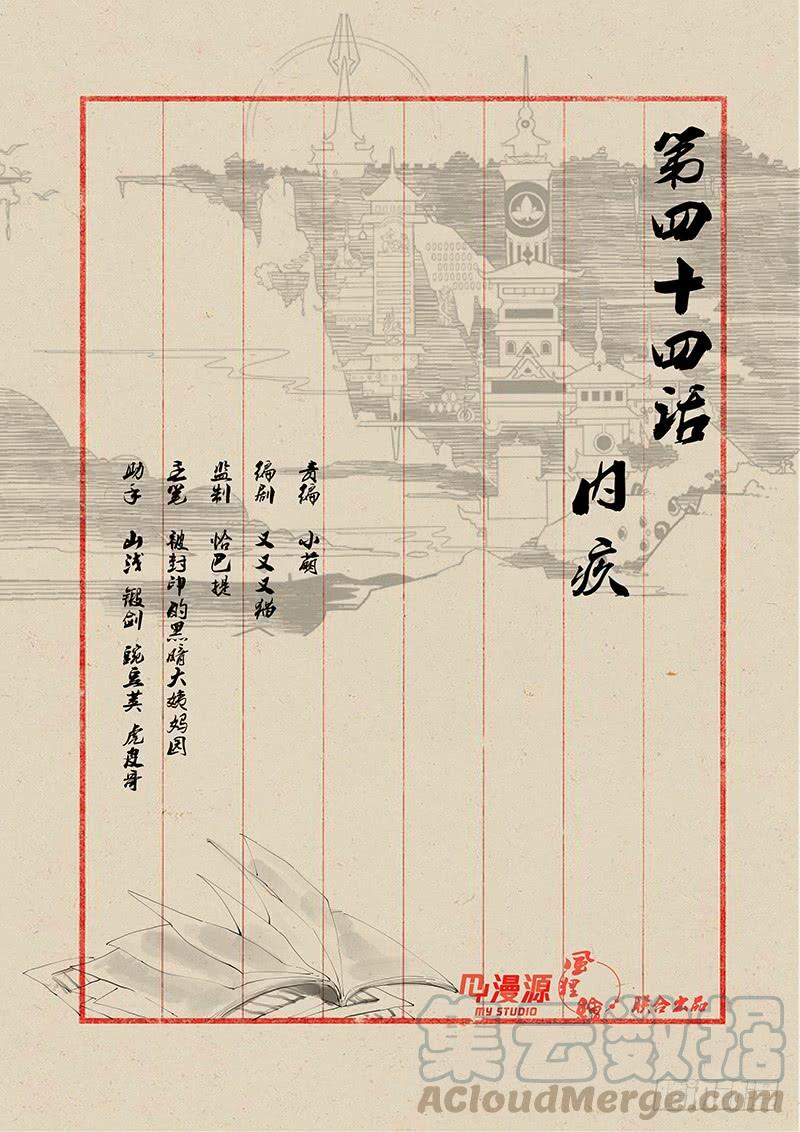 第四十四话
内疾
责编 小萌
编剧 又又又猫
监制 恰巴提
主笔 被封印的黑暗大姨妈园
助手 山浅 锻剑 豌豆荚 虎皮哥
漫源
MY STUDIO
联合出品
集云数据
AcloudMerge.com